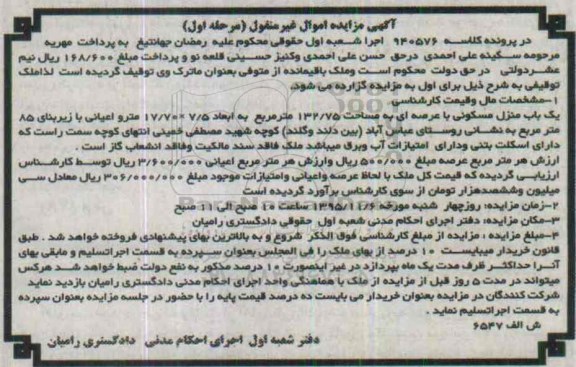 آگهی مزایده اموال غیر منقول (مرحله اول)
در پرونده کلاسه 940576 اجرا شعبه اول حقوقی محکوم علیه رمضان جهانتیغ به پرداخت مهریه
مرحومه سکینه علی احمدی درحق حسن علی احمدی وکنیز حسینی قلعه نو و پرداخت مبلغ 168/600 ریال نیم
عشردولتی در حق دولت محکوم است وملک باقیمانده از متوفی بعنوان ماترک وی توقیف گردیده است لذاملک
توقیفی به شرح ذیل برای اول به مزایده گزارده می شود.
1-مشخصات مال وقیمت کارشناسی
یک باب منزل مسکونی با عرصه ای به مساحت 132/75 مترمربع به ابعاد 7/5 *17/70 مترو اعیانی با زیربنای 85
متر مربع به نشانی روستای عباس آباد (بین دلند وگلند) کوچه شهید مصطفی خمینی انتهای کوچه سمت راست که
دارای اسکلت بتنی ودارای امتیازات آب وبرق میباشد ملک فاقد سند مالکیت وفاقد انشعاب گاز است .
ارزش هر متر مربع عرصه مبلغ 500/000 ریال وارزش هر متر مربع اعیانی 2/600/000 ریال توسط کارشناس
ارزیابی گردیده که قیمت کل ملک با لحاظ عرصه واعیانی وامتیازات موجود مبلغ 306/000/000 ریال معادل سی
میلیون وششصدهزار تومان از سوی کارشناس برآورد گردیده است
2-زمان مزایده: روزچهار شنبه مورخه 1395/11/6 ساعت 10 صبح الی 11 صبح
3-مکان مزایده: دفتر اجرای احکام مدنی شعبه اول حقوقی دادگستری رامیان
4-مبلغ مزایده ، مزایده از مبلغ کارشناسی فوق الذکر شروع و به بالاترین بهای پیشنهادی فروخته خواهد شد . طبق
قانون خریدار میبایست 10 درصد از بهای ملک را فی المجلس بعنوان سپرده به قسمت اجراتسلیم و مابقی بهای
آنرا حداکثر ظرف مدت یک ماه بپردازد در غیر اینصورت 10 درصد مذکور به نفع دولت ضبط خواهد شد هرکس
میتواند در مدت 5 روز قبل از مزایده از ملک با هماهنگی واحد اجرای احکام مدنی دادگستری رامیان بازدید نماید
شرکت کنندگان در مزایده بعنوان خریدار می بایست ده درصد قیمت پایه را با حضور در جلسه مزایده بعنوان سپرده
به قسمت اجراتسلیم نماید .
ش الف 6547
دفتر شعبه اول اجرای احکام مدنی دادگستری رامیان